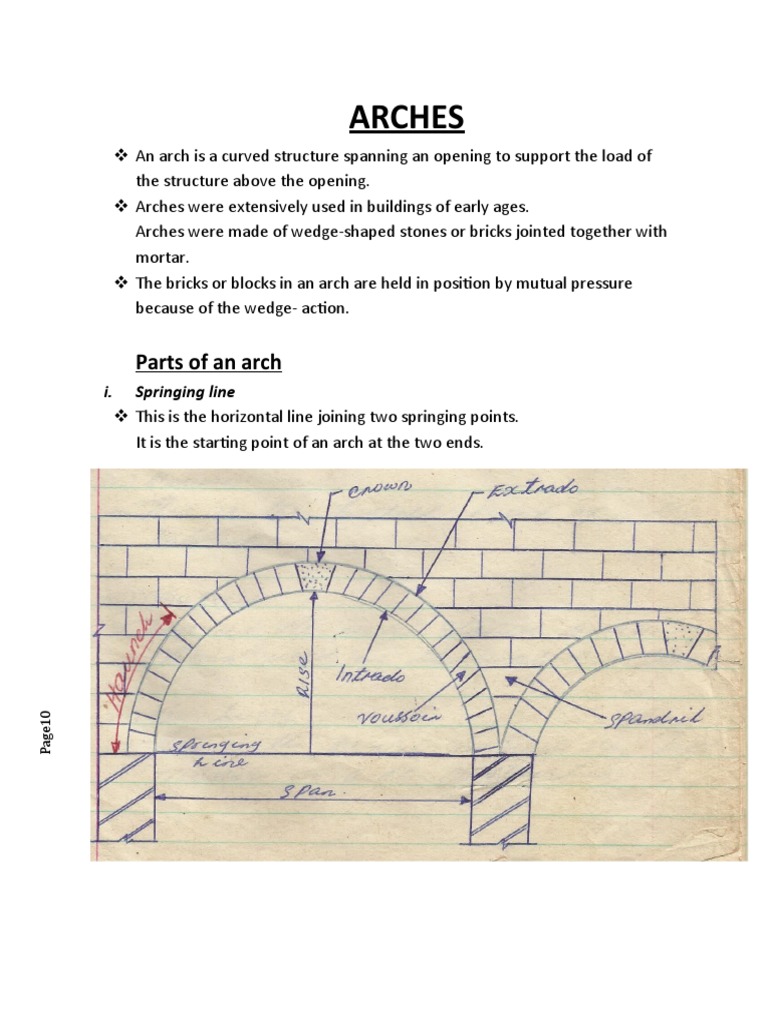 ARCHES
❖ An arch is a curved structure spanning an opening to support the load of
the structure above the opening.
❖ Arches were extensively used in buildings of early ages.
Arches were made of wedge-shaped stones or bricks jointed together with
mortar.
❖ The bricks or blocks in an arch are held in position by mutual pressure
because of the wedge- action.
Parts of an arch
i. Springing line
❖ This is the horizontal line joining two springing points.
It is the starting point of an arch at the two ends.
Crown
Extrado
Haunch
Rise
Intrado
Voussoir
Spandril
Springing
Line
Span.
Page10